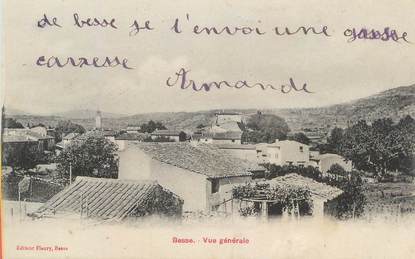 de besse je t'envoi une grosse
carresse
Armande
Besse. - Vue générale
Editeur Fleury, Besse